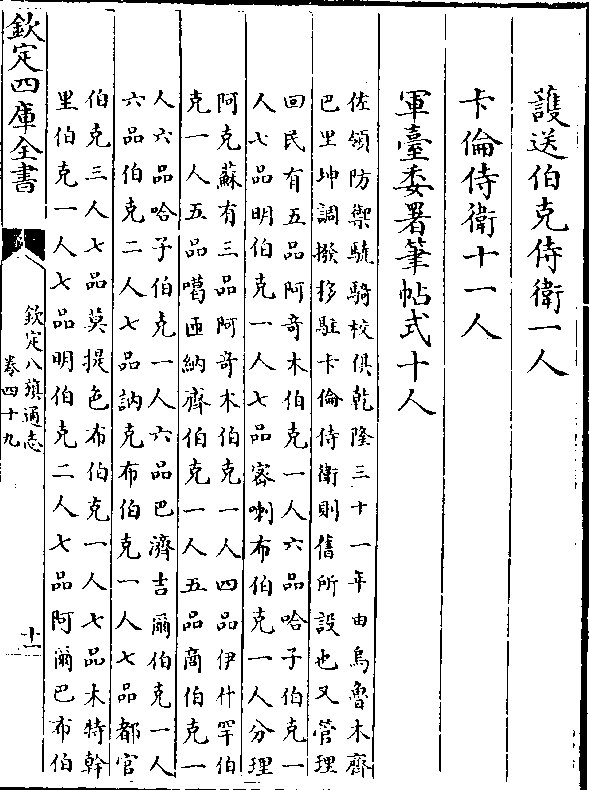 護送伯克侍衛一人
卡倫侍衛十一人
軍臺委署筆帖式十人
佐領防禦驍騎校俱乾隆三十一年由烏魯木齊
巴里坤調撥移駐卡倫侍衛則舊所設也又管理
回民有五品阿竒木伯克一人六品哈子伯克一
人七品明伯克一人七品密喇布伯克一人分理
阿克蘇有三品阿竒木伯克一人四品伊什罕伯
克一人五品噶匝納齊伯克一人五品商伯克一
人六品哈子伯克一人六品巴濟吉爾伯克一人
六品伯克二人七品訥克布伯克一人七品都官
伯克三人七品莫提色布伯克一人七品木特斡
里伯克一人七品明伯克二人七品阿爾巴布伯
欽定四庫全書
欽定八旗通志
卷四十九
十一